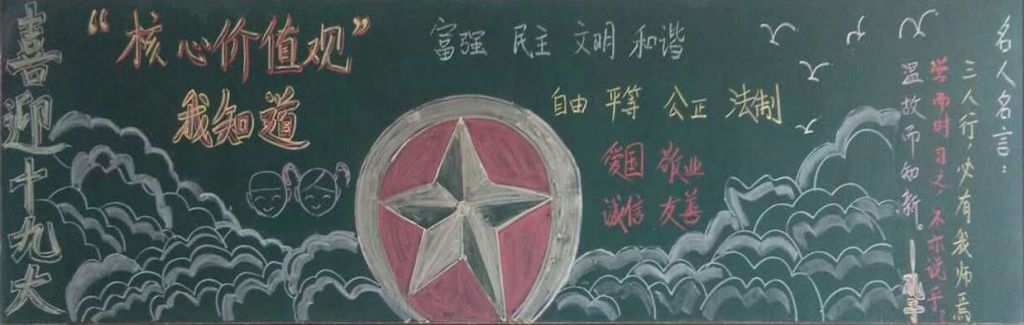 喜迎十九大
“核心价值观”
我知道
富强 民主 文明 和谐
自由 平等 公正 法制
爱国 敬业
诚信 友善
名人名言：
三人行，必有我师焉
学而时习之 不亦说乎
温故而知新。——孔子